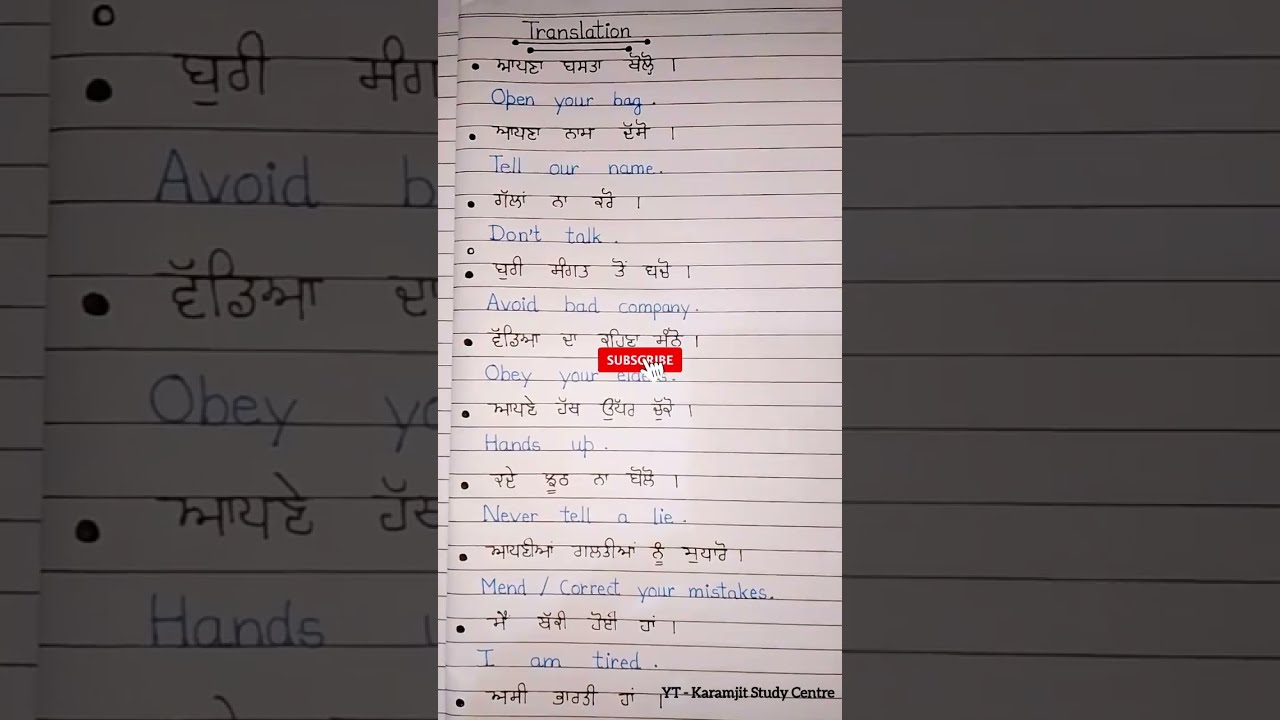 Translation
ਆਪਣਾ ਬਸਤਾ ਖੋਲ੍ਹੋ ।
Open your bag.
ਆਪਣਾ ਨਾਮ ਦੱਸੋ ।
Tell our name.
ਗੱਲਾਂ ਨਾ ਕਰੋ ।
Don't talk.
ਬੁਰੀ ਸੰਗਤ ਤੋਂ ਬਚੋ ।
Avoid bad company.
ਵੱਡਿਆ ਦਾ ਕਹਿਣਾ ਮੰਨੋ ।
SUBSCRIBE
Obey your elders.
ਆਪਣੇ ਹੱਥ ਉੱਪਰ ਚੁੱਕੋ ।
Hands up.
ਕਦੇ ਝੂਠ ਨਾ ਬੋਲੋ ।
Never tell a lie.
ਆਪਣੀਆਂ ਗਲਤੀਆਂ ਨੂੰ ਸੁਧਾਰੋ ।
Mend / Correct your mistakes.
ਮੈਂ ਥੱਕੀ ਹੋਈ ਹਾਂ ।
I am tired.
ਅਸੀ ਭਾਰਤੀ ਹਾਂ ।
YT - Karamjit Study Centre